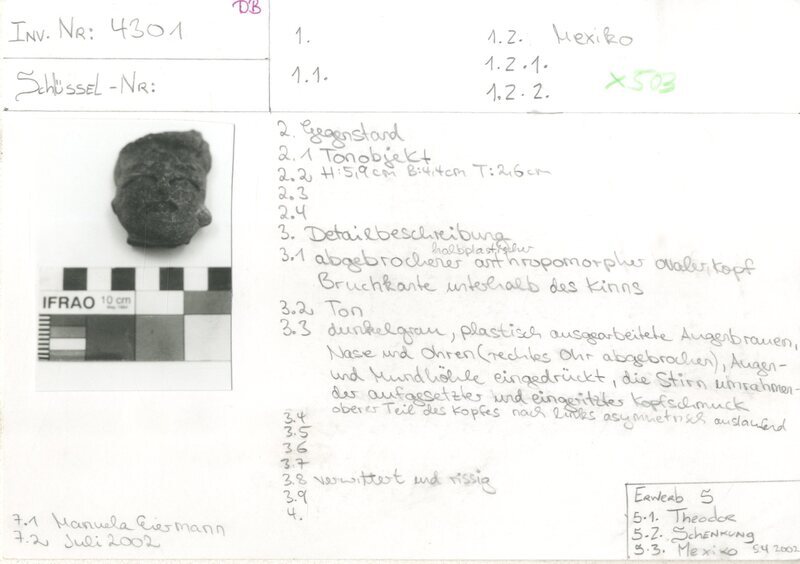 DB
INV. NR: 4301
SCHLÜSSEL-NR:
1.
1.1.
1.2. Mexiko
1.2.1.
1.2.2.
X503
IFRAO 10 cm
2. Gegenstand
2.1 Tonobjekt
2.2 H:5,9cm B:4,4cm T:2,6cm
2.3
2.4
3. Detailbeschreibung
halbplastischer
3.1 abgebrochener anthropomorpher ovaler Kopf
Bruchkante unterhalb des Kinns
3.2 Ton
3.3 dunkelgrau, plastisch ausgearbeitete Augenbrauen,
Nase und Ohren (rechtes Ohr abgebrochen), Augen-
und Mundhöhle eingedrückt, die Stirn umrahmen-
der aufgesetzter und eingeritzter Kopfschmuck
oberer Teil des Kopfes nach links asymmetrisch auslaufend
3.4
3.5
3.6
3.7
3.8 verwittert und rissig
3.9
4.
7.1 Manuela Eiermann
7.2 Juli 2002
ERWERB 5
5.1. Theodor
5.2. SCHENKUNG
5.3. Mexiko 5.4 2002